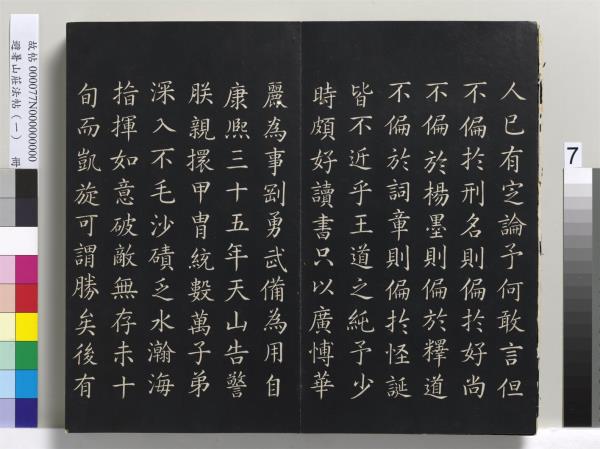 人已有定論予何敢言但
不偏於刑名則偏於好尚
不偏於楊墨則偏於釋道
不偏於詞章則偏於怪誕
皆不近乎王道之純予少
時頗好讀書只以廣博華
麗為事剛勇武備為用自
康熙三十五年天山告警
朕親擐甲冑統數萬子弟
深入不毛沙磧乏水瀚海
指揮如意破敵無存未十
旬而凱旋可謂勝矣後有
故帖 000077N000000000
避暑山莊法帖(一) 冊
7